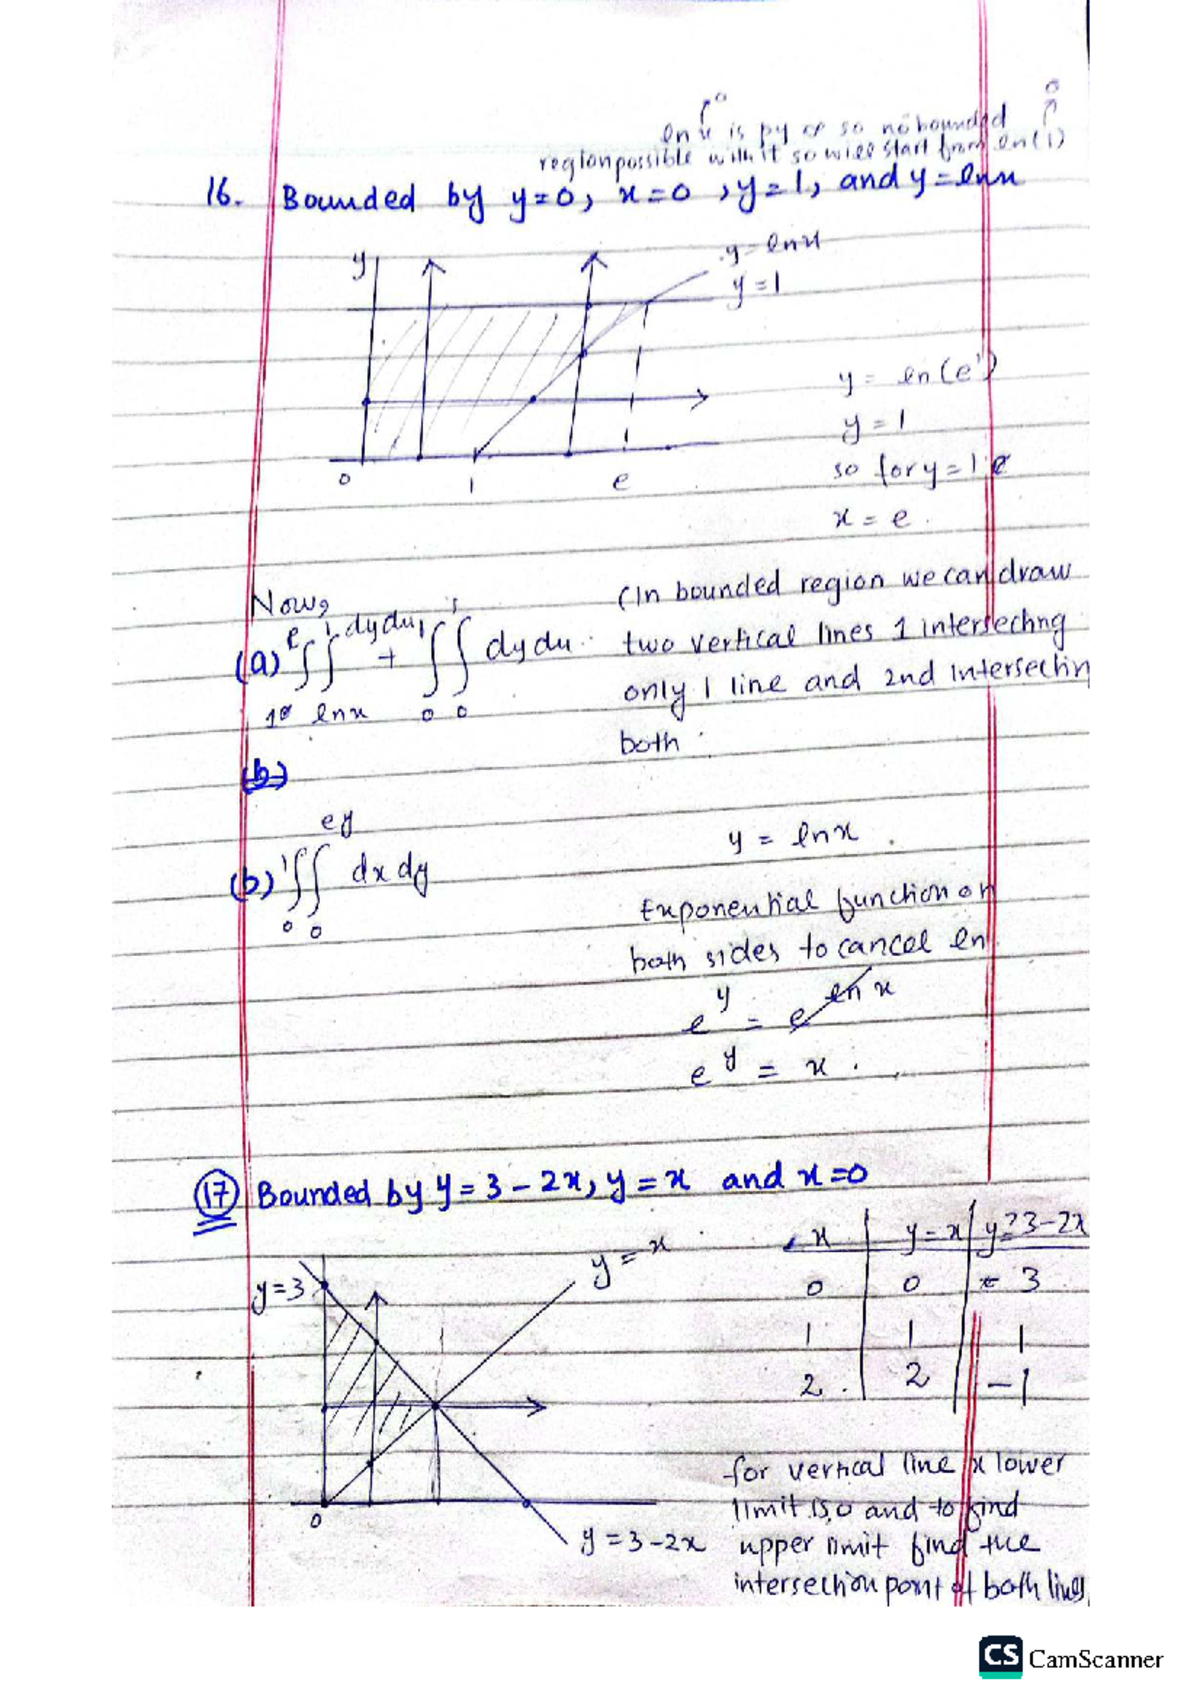 ln x is
so no bounded
region possible with it so will start from ln(1)
16. Bounded by y=0, x=0, y=1, and y=lnx
y
y=lnx
y=1
0 1 e
y = ln(e¹)
y = 1
so for y=1
x = e.
Now,
(a) ∫₁ᵉ∫ₗₙₓ¹ dydx + ∫₀¹∫₀¹ dydx
(In bounded region we can draw
two vertical lines 1 intersecting
only 1 line and 2nd intersectin
both
(b)
(b) ∫₀¹∫₀^(e^y) dx dy
y = lnx.
Exponential function on
both sides to cancel ln.
e^y = e^(ln x)
e^y = x.
17 Bounded by y=3-2x, y=x and x=0
x | y=x | y=3-2x
0 | 0 | 3
1 | 1 | 1
2 | 2 | -1
y=3
y=x
1
0
y=3-2x
for vertical line x lower
limit is 0 and to find
upper limit find the
intersection point of both lines
CS CamScanner